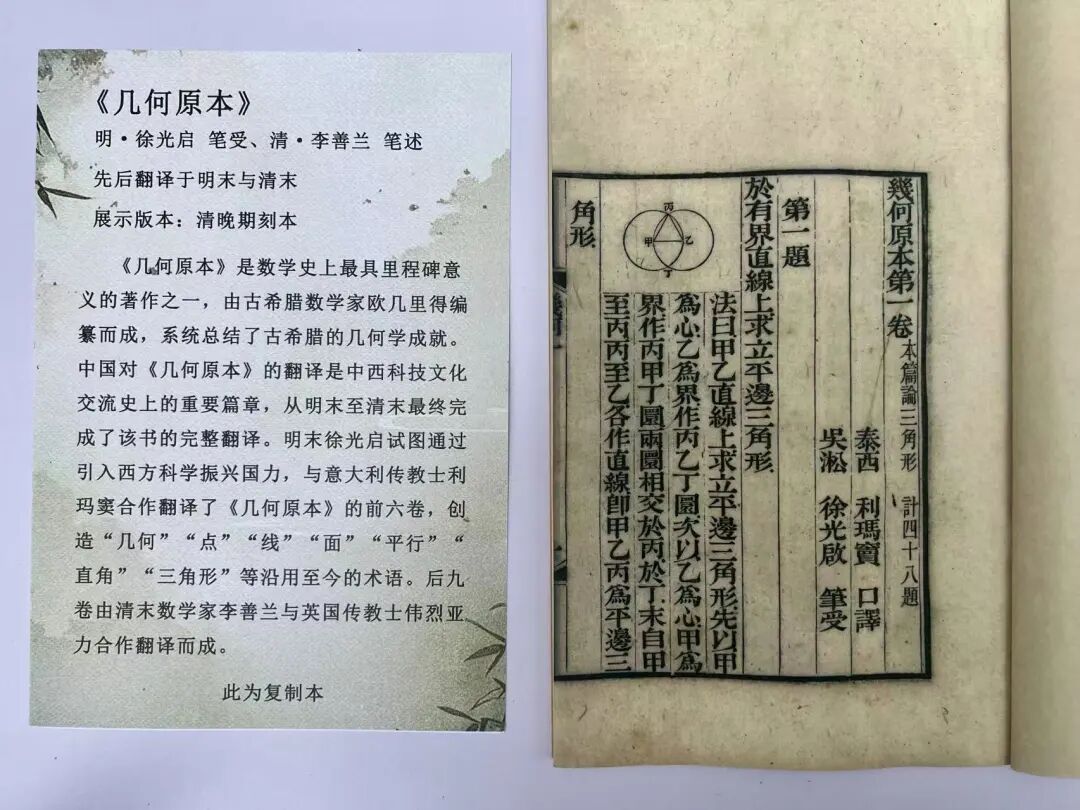 《几何原本》
明·徐光启 笔受、清·李善兰 笔述
先后翻译于明末与清末
展示版本：清晚期刻本
《几何原本》是数学史上最具里程碑意
义的著作之一，由古希腊数学家欧几里得编
纂而成，系统总结了古希腊的几何学成就。
中国对《几何原本》的翻译是中西科技文化
交流史上的重要篇章，从明末至清末最终完
成了该书的完整翻译。明末徐光启试图通过
引入西方科学振兴国力，与意大利传教士利
玛窦合作翻译了《几何原本》的前六卷，创
造“几何”“点”“线”“面”“平行”“
直角”“三角形”等沿用至今的术语。后九
卷由清末数学家李善兰与英国传教士伟烈亚
力合作翻译而成。
此为复制本
幾何原本第一卷 本篇論三角形 計四十八題
泰西 利瑪竇 口譯
吳淞 徐光啟 筆受
第一題
於有界直線上求立平邊三角形
法曰甲乙直線上求立平邊三角形先以甲
爲心乙爲界作丙乙丁圜次以乙爲心甲爲
界作丙甲丁圜兩圜相交於丙於丁末自甲
至丙丙至乙各作直線卽甲乙丙爲平邊三
角形
丙
甲 乙
丁